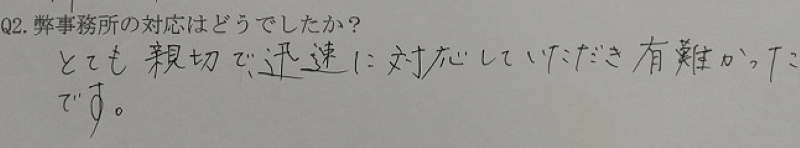 Q2.弊事務所の対応はどうでしたか?
とても親切で、迅速に対応していただき有難かった
です。